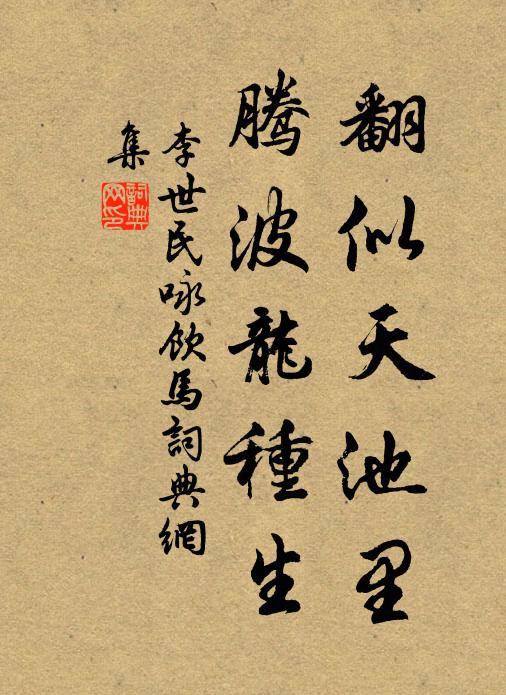 翻似天池里
騰波龍種生
李世民咏飲馬詞典網
集
詞典
网印